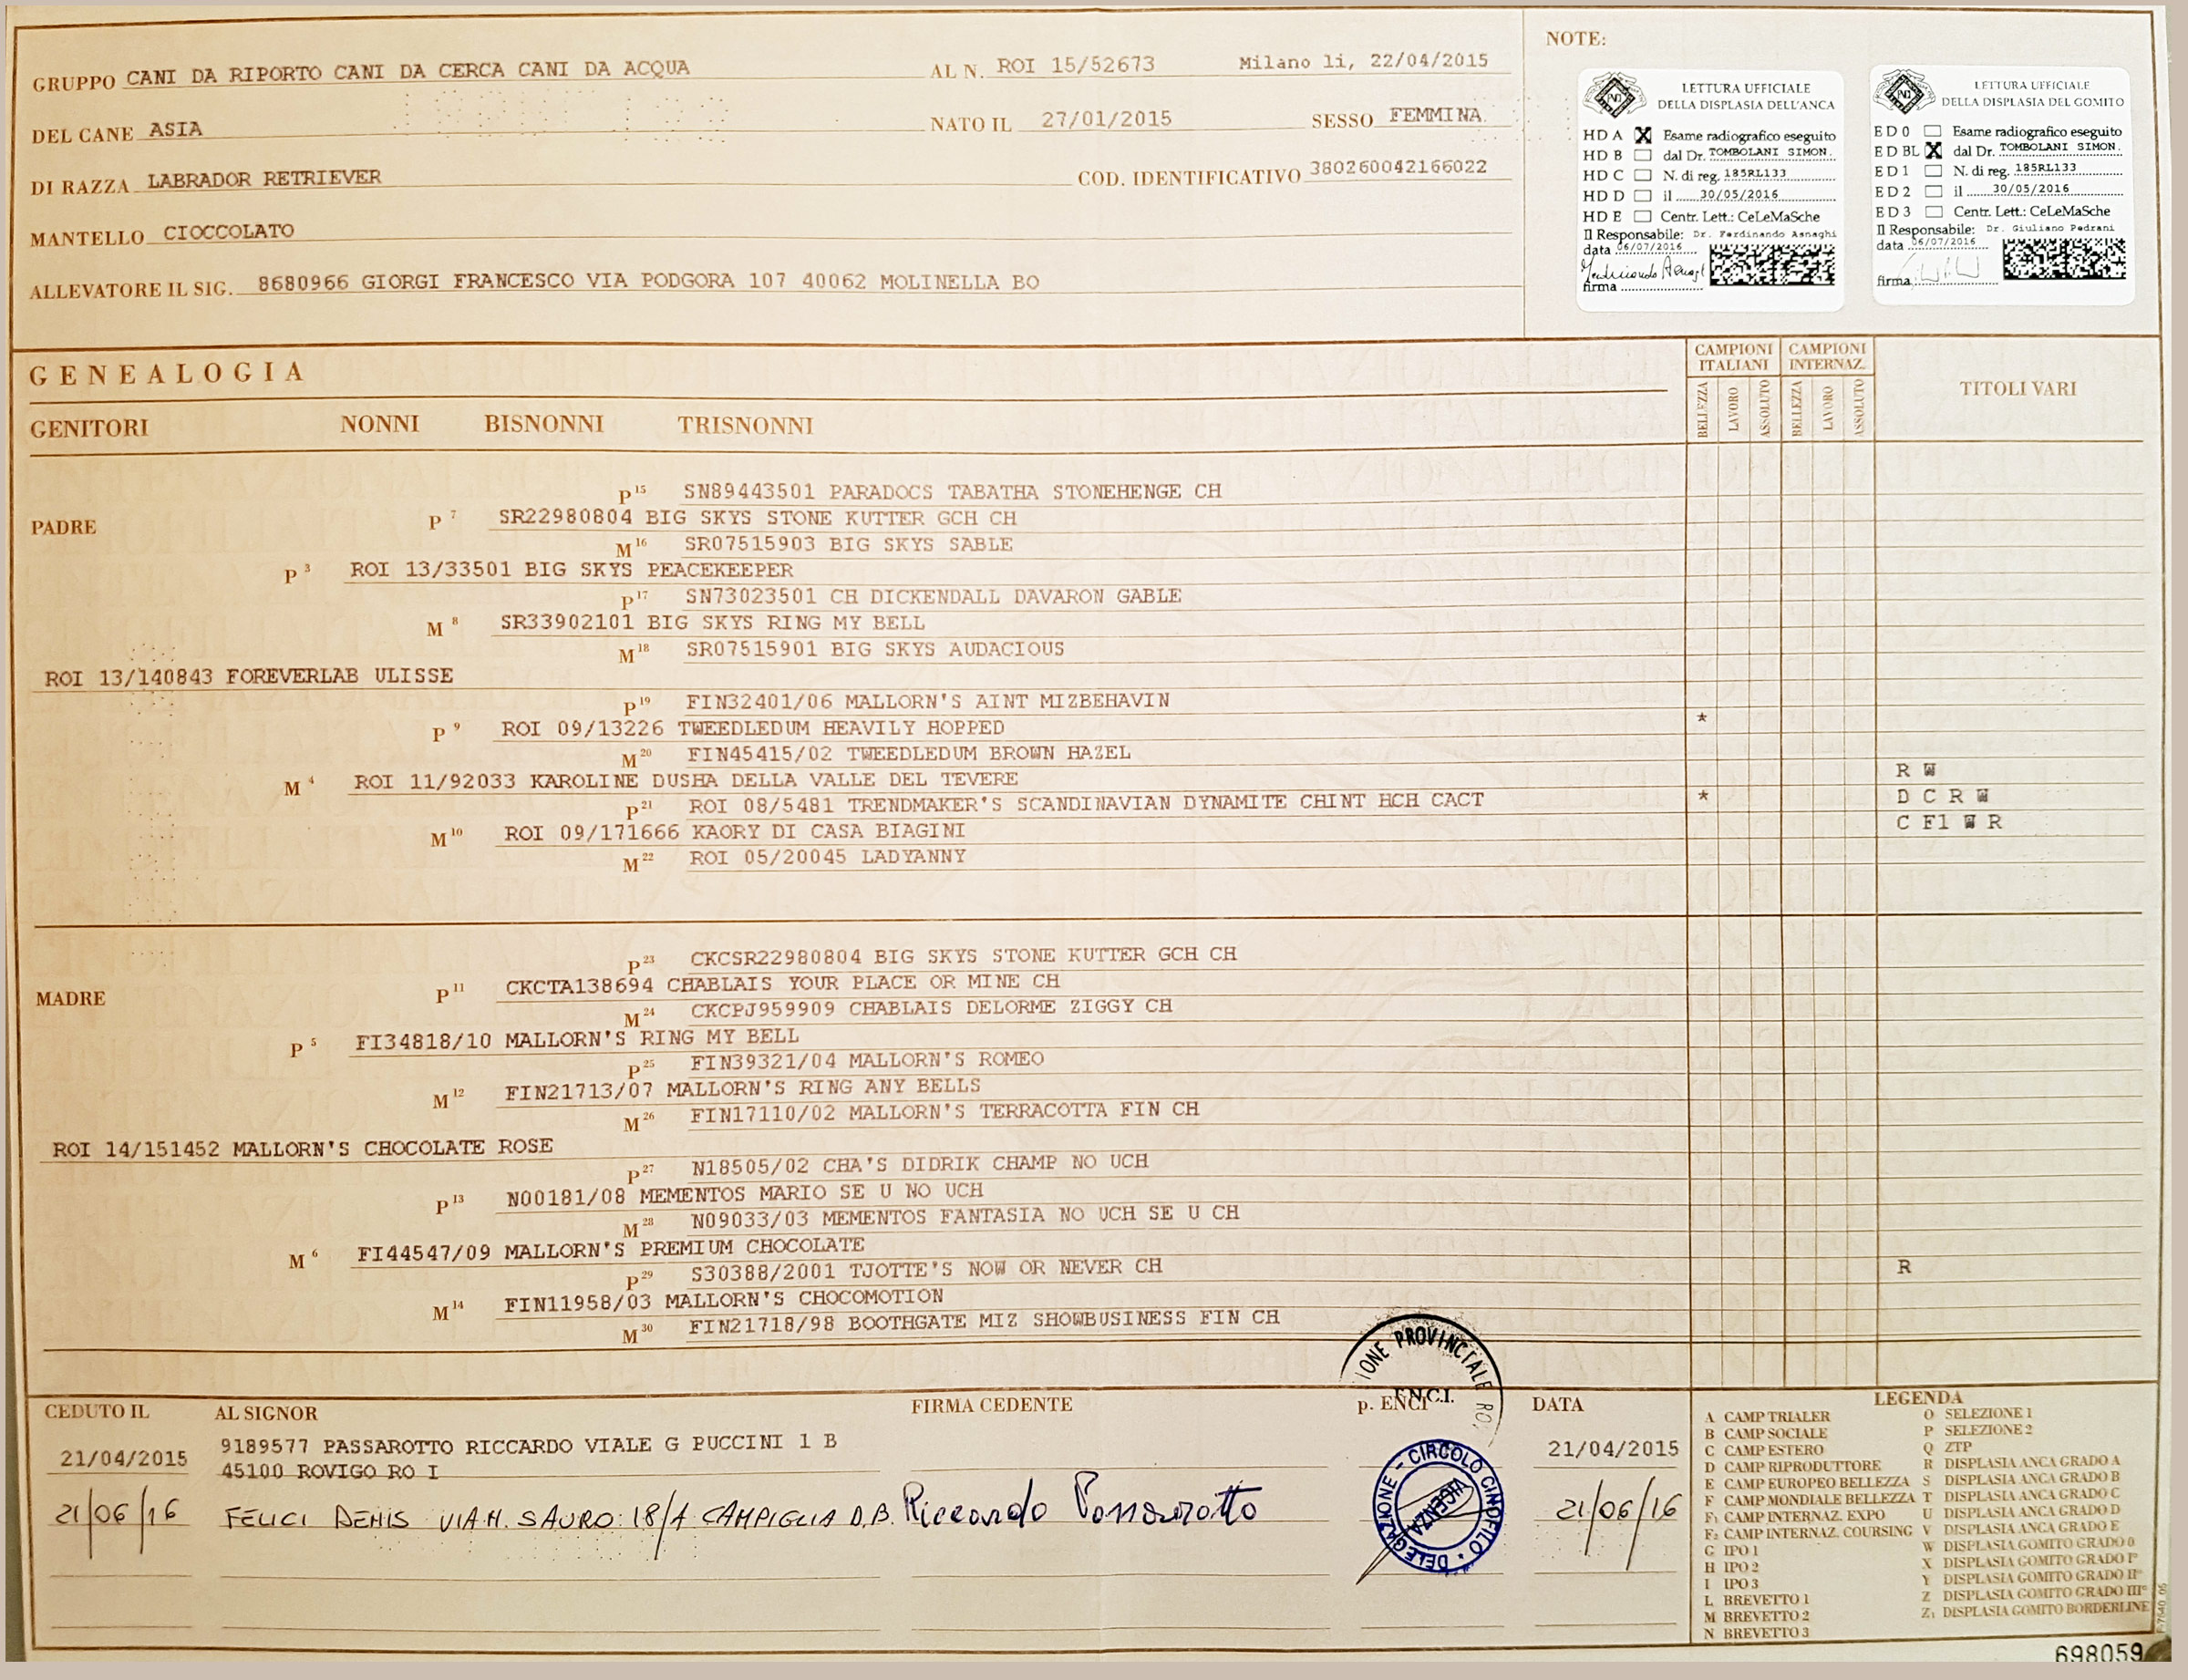 GRUPPO CANI DA RIPORTO CANI DA CERCA CANI DA ACQUA AL N. ROI 15/52673 Milano li, 22/04/2015
DEL CANE ASIA NATO IL 27/01/2015 SESSO FEMMINA
DI RAZZA LABRADOR RETRIEVER COD. IDENTIFICATIVO 380260042166022
MANTELLO CIOCCOLATO
ALLEVATORE IL SIG. 8680966 GIORGI FRANCESCO VIA PODGORA 107 40062 MOLINELLA BO
NOTE:
LETTURA UFFICIALE
DELLA DISPLASIA DELL'ANCA
HD A X Esame radiografico eseguito
HD B dal Dr. TOMBOLANI SIMON.
HD C N. di reg. 185RL133
HD D il 30/05/2016
HD E Centr. Lett.: CeLeMaSche
Il Responsabile: Dr. Ferdinando Asnaghi
data 06/07/2016
firma
LETTURA UFFICIALE
DELLA DISPLASIA DEL GOMITO
ED 0 Esame radiografico eseguito
ED BL X dal Dr. TOMBOLANI SIMON.
ED 1 N. di reg. 185RL133
ED 2 il 30/05/2016
ED 3 Centr. Lett.: CeLeMaSche
Il Responsabile: Dr. Giuliano Pedrani
data 06/07/2016
firma
GENEALOGIA
CAMPIONI ITALIANI CAMPIONI INTERNAZ. TITOLI VARI
BELLEZZA LAVORO ASSOLUTO BELLEZZA LAVORO ASSOLUTO
GENITORI NONNI BISNONNI TRISNONNI
P 15 SN89443501 PARADOCS TABATHA STONEHENGE CH
PADRE P 7 SR22980804 BIG SKYS STONE KUTTER GCH CH
M 16 SR07515903 BIG SKYS SABLE
P 3 ROI 13/33501 BIG SKYS PEACEKEEPER
P 17 SN73023501 CH DICKENDALL DAVARON GABLE
M 8 SR33902101 BIG SKYS RING MY BELL
M 18 SR07515901 BIG SKYS AUDACIOUS
ROI 13/140843 FOREVERLAB ULISSE
P 19 FIN32401/06 MALLORN'S AINT MIZBEHAVIN
P 9 ROI 09/13226 TWEEDLEDUM HEAVILY HOPPED *
M 20 FIN45415/02 TWEEDLEDUM BROWN HAZEL
M 4 ROI 11/92033 KAROLINE DUSHA DELLA VALLE DEL TEVERE R W
P 21 ROI 08/5481 TRENDMAKER'S SCANDINAVIAN DYNAMITE CHINT HCH CACT * D C R W
M 10 ROI 09/171666 KAORY DI CASA BIAGINI C F1 W R
M 22 ROI 05/20045 LADYANNY
P 23 CKCSR22980804 BIG SKYS STONE KUTTER GCH CH
MADRE P 11 CKCTA138694 CHABLAIS YOUR PLACE OR MINE CH
M 24 CKCPJ959909 CHABLAIS DELORME ZIGGY CH
P 5 FI34818/10 MALLORN'S RING MY BELL
P 25 FIN39321/04 MALLORN'S ROMEO
M 12 FIN21713/07 MALLORN'S RING ANY BELLS
M 26 FIN17110/02 MALLORN'S TERRACOTTA FIN CH
ROI 14/151452 MALLORN'S CHOCOLATE ROSE
P 27 N18505/02 CHA'S DIDRIK CHAMP NO UCH
P 13 N00181/08 MEMENTOS MARIO SE U NO UCH
M 28 N09033/03 MEMENTOS FANTASIA NO UCH SE U CH
M 6 FI44547/09 MALLORN'S PREMIUM CHOCOLATE
P 29 S30388/2001 TJOTTE'S NOW OR NEVER CH R
M 14 FIN11958/03 MALLORN'S CHOCOMOTION
M 30 FIN21718/98 BOOTHGATE MIZ SHOWBUSINESS FIN CH
IONE PROVINCIALE RO.
E.N.C.I.
CEDUTO IL AL SIGNOR FIRMA CEDENTE p. ENCI DATA
21/04/2015 9189577 PASSAROTTO RICCARDO VIALE G PUCCINI 1 B 21/04/2015
45100 ROVIGO RO I
21/06/16 FELICI DENIS VIA N. SAURO 18/A CAMPIGLIA D.B. Riccardo Passarotto 21/06/16
DELEGAZIONE - CIRCOLO CINOFILO
VICENZA
LEGENDA
A CAMP TRIALER
B CAMP SOCIALE
C CAMP ESTERO
D CAMP RIPRODUTTORE
E CAMP EUROPEO BELLEZZA
F CAMP MONDIALE BELLEZZA
F1 CAMP INTERNAZ. EXPO
F2 CAMP INTERNAZ. COURSING
G IPO 1
H IPO 2
I IPO 3
L BREVETTO 1
M BREVETTO 2
N BREVETTO 3
O SELEZIONE 1
P SELEZIONE 2
Q ZTP
R DISPLASIA ANCA GRADO A
S DISPLASIA ANCA GRADO B
T DISPLASIA ANCA GRADO C
U DISPLASIA ANCA GRADO D
V DISPLASIA ANCA GRADO E
W DISPLASIA GOMITO GRADO 0
X DISPLASIA GOMITO GRADO I°
Y DISPLASIA GOMITO GRADO II°
Z DISPLASIA GOMITO GRADO III°
Z1 DISPLASIA GOMITO BORDERLINE
698059